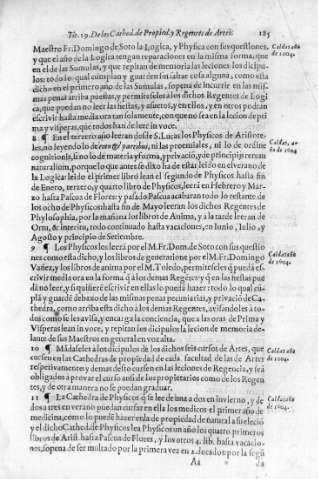 Tit. 19. De las Cathed. de Propied. y Regentes de Artes. 185
Maestro Fr. Domingo de Soto la Logica, y Physica con sus questiones,
y que el año de la Logica tengan reparaciones en la misma forma, que
en el de las Sumulas, y que repitan de memoria las leciones los dicipu-
los: todo lo qual cumplan y guarden sin faltar cosa alguna, como esta
dicho en el primero año de las Sumulas, sopena de incurrir en las mis-
mas penas arriba puestas, y permitese los a los dichos Regentes de Logi-
ca, que puedan no leer las fiestas, y assuetos, y en ellos, y en otros podran
escrivir hasta media ora tan solamente, con que no sea en la lecion de pri
ma y visperas, que todos han de leer in voce.
Caldas año
de 1604.
8 ¶ En el tercero año lean desde S. Lucas los Physicos de Aristote-
les, no leyendo lo de
ni los proemiales, ni lo de ordine
cognitionis, sino lo de materia y forma, y privacio, y de principijs rerum
naturalium, porque lo que antes de dito ha de estar leido en el verano de
la Logica: leido el primer libro lean el segundo de Physicos hasta fin
de Enero, tercero, y quarto libro de Physicos, leera en Hebrero y Mar-
zo hasta Pascua de Flores y passado Pascua acabaran todo lo restante de
los ocho de Physicos hasta fin de Mayo lean los dichos Regentes de
Phylosophia, por la mañana los libros de Anima, y a la tarde lean de
Ortu, & interitu, todo continuado hasta vacaciones, en Iunio, Iulio, y
Agosto y principio de Setiembre.
9 ¶ Los Physicos los leera por el M. Fr. Dom. de Soto con sus questio
nes como esta dicho, y los libros de generatione por el M. Fr. Domingo
Vañez, y los libros de anima por el M. Toledo, permitese les q̃ pueda es-
crivir media ora en la forma q̃ a los demas Regẽtes y q̃ en las fiestas pue
dã no leer, y si quisierẽ escrivir en ellas lo pueda hazer todo lo qual cũ-
plã y guardẽ debaxo de las mismas penas pecuniarias, y privació de Ca-
thedra, como arriba esta dicho a los demas Regentes, avisandoles a to-
dos como se les avisa, y encarga la conciencia, que a las oras de Prima y
Visperas lean in voce, y repitan los dicipulos la lecion de memoria de-
lante de sus Maestros en general en voz alta.
Caldas año
de 1604.
10 ¶ Mãdase les a los dicipulos de los dichos seis cursos de Artes, que
cursen en las Cathedras de propiedad de cada facultad de las de Artes
respetivamente y demas desto cursen en las leciones de Regencia, y serã
obligados a provar el curso ansi de los propietarios como de los Regen
tes, y de otra manera no se puedan graduar.
Caldas año
de 1604.
11 ¶ La Cathedra de Physicos q̃ se lee de una a dos en invierno, y de
dos a tres en verano puedan cursar en ella los medicos el primer año de
medicina, como lo puede hazer en la de propiedad de natural a su elecciõ
y el dicho Cathed. de Physicos lea Physicos un año los quatro primeros
libros de Arist. hasta Pascua de Flores, y los otros 4. lib. hasta vacacio-
nes, sopena de ser multado por la primera vez en 2. ducados por la segũ
Caldas año
de 1604.
Aa da